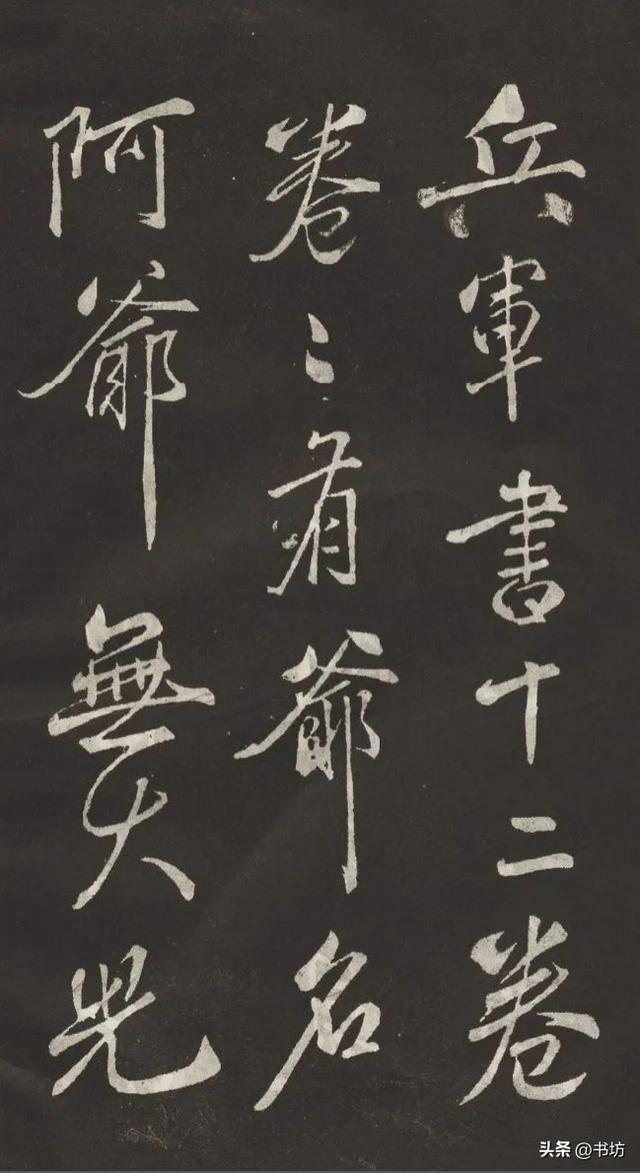 兵軍書十二卷
卷〻有爺名
阿爺無大兒
头条 @书坊